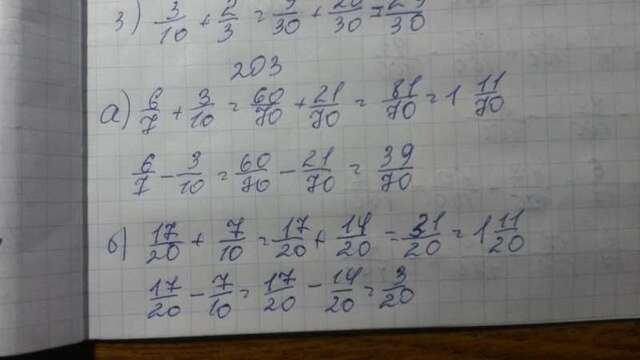 з) 3/10 + 2/3 = 9/30 + 20/30 = 29/30
203
а) 6/7 + 3/10 = 60/70 + 21/70 = 81/70 = 1 11/70
6/7 - 3/10 = 60/70 - 21/70 = 39/70
б) 17/20 + 7/10 = 17/20 + 14/20 = 31/20 = 1 11/20
17/20 - 7/10 = 17/20 - 14/20 = 3/20